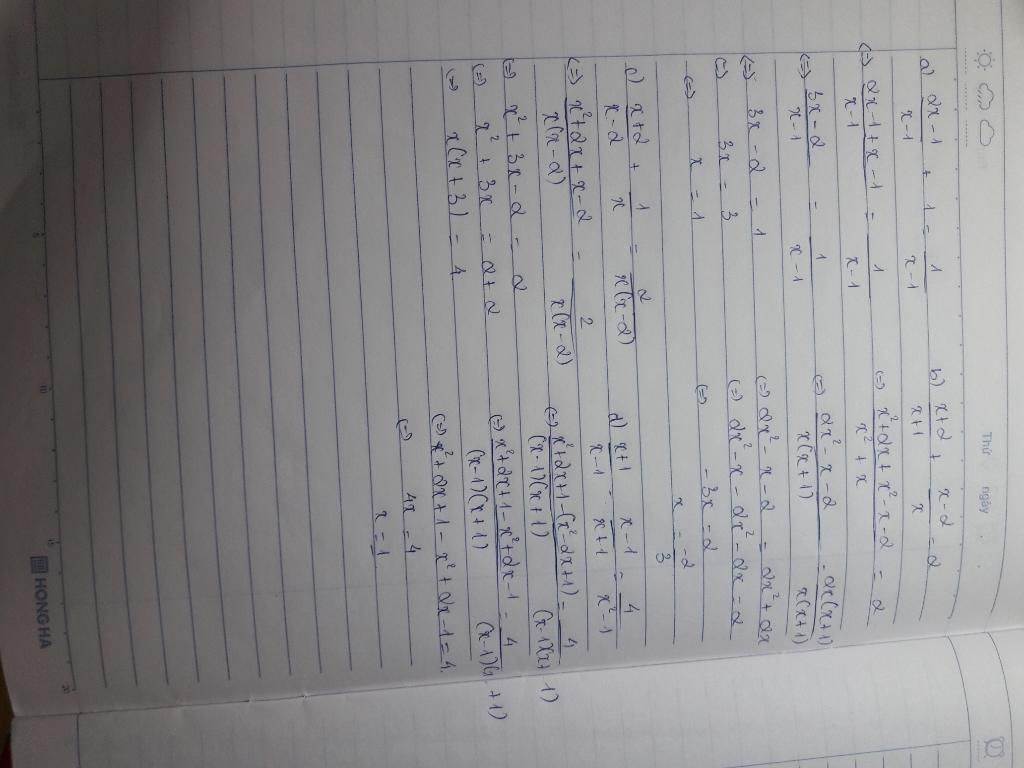 Thứ ngày
a) (2x-1)/(x-1) + 1 = 1/(x-1)
(=) (2x-1+x-1)/(x-1) = 1/(x-1)
(=) (3x-2)/(x-1) = 1/(x-1)
(=) 3x-2 = 1
(=) 3x = 3
(=) x = 1
b) (x+2)/(x+1) + (x-2)/x = 2
(=) (x²+2x+x²-x-2)/(x²+x) = 2
(=) (2x²-x-2)/(x(x+1)) = 2x(x+1)/(x(x+1))
(=) 2x²-x-2 = 2x²+2x
(=) 2x²-x-2x²-2x = 2
(=) -3x = 2
x = -2/3
c) (x+2)/(x-2) + 1/x = 2/(x(x-2))
(=) (x²+2x+x-2)/(x(x-2)) = 2/(x(x-2))
(=) x²+3x-2 = 2
(=) x²+3x = 2+2
(=) x(x+3) = 4
d) (x+1)/(x-1) - (x-1)/(x+1) = 4/(x²-1)
(=) (x²+2x+1-(x²-2x+1))/((x-1)(x+1)) = 4/((x-1)(x+1))
(=) (x²+2x+1-x²+2x-1)/((x-1)(x+1)) = 4/((x-1)(x+1))
(=) x²+2x+1-x²+2x-1 = 4
(=) 4x = 4
x = 1
5 10 15 20
HONG HA